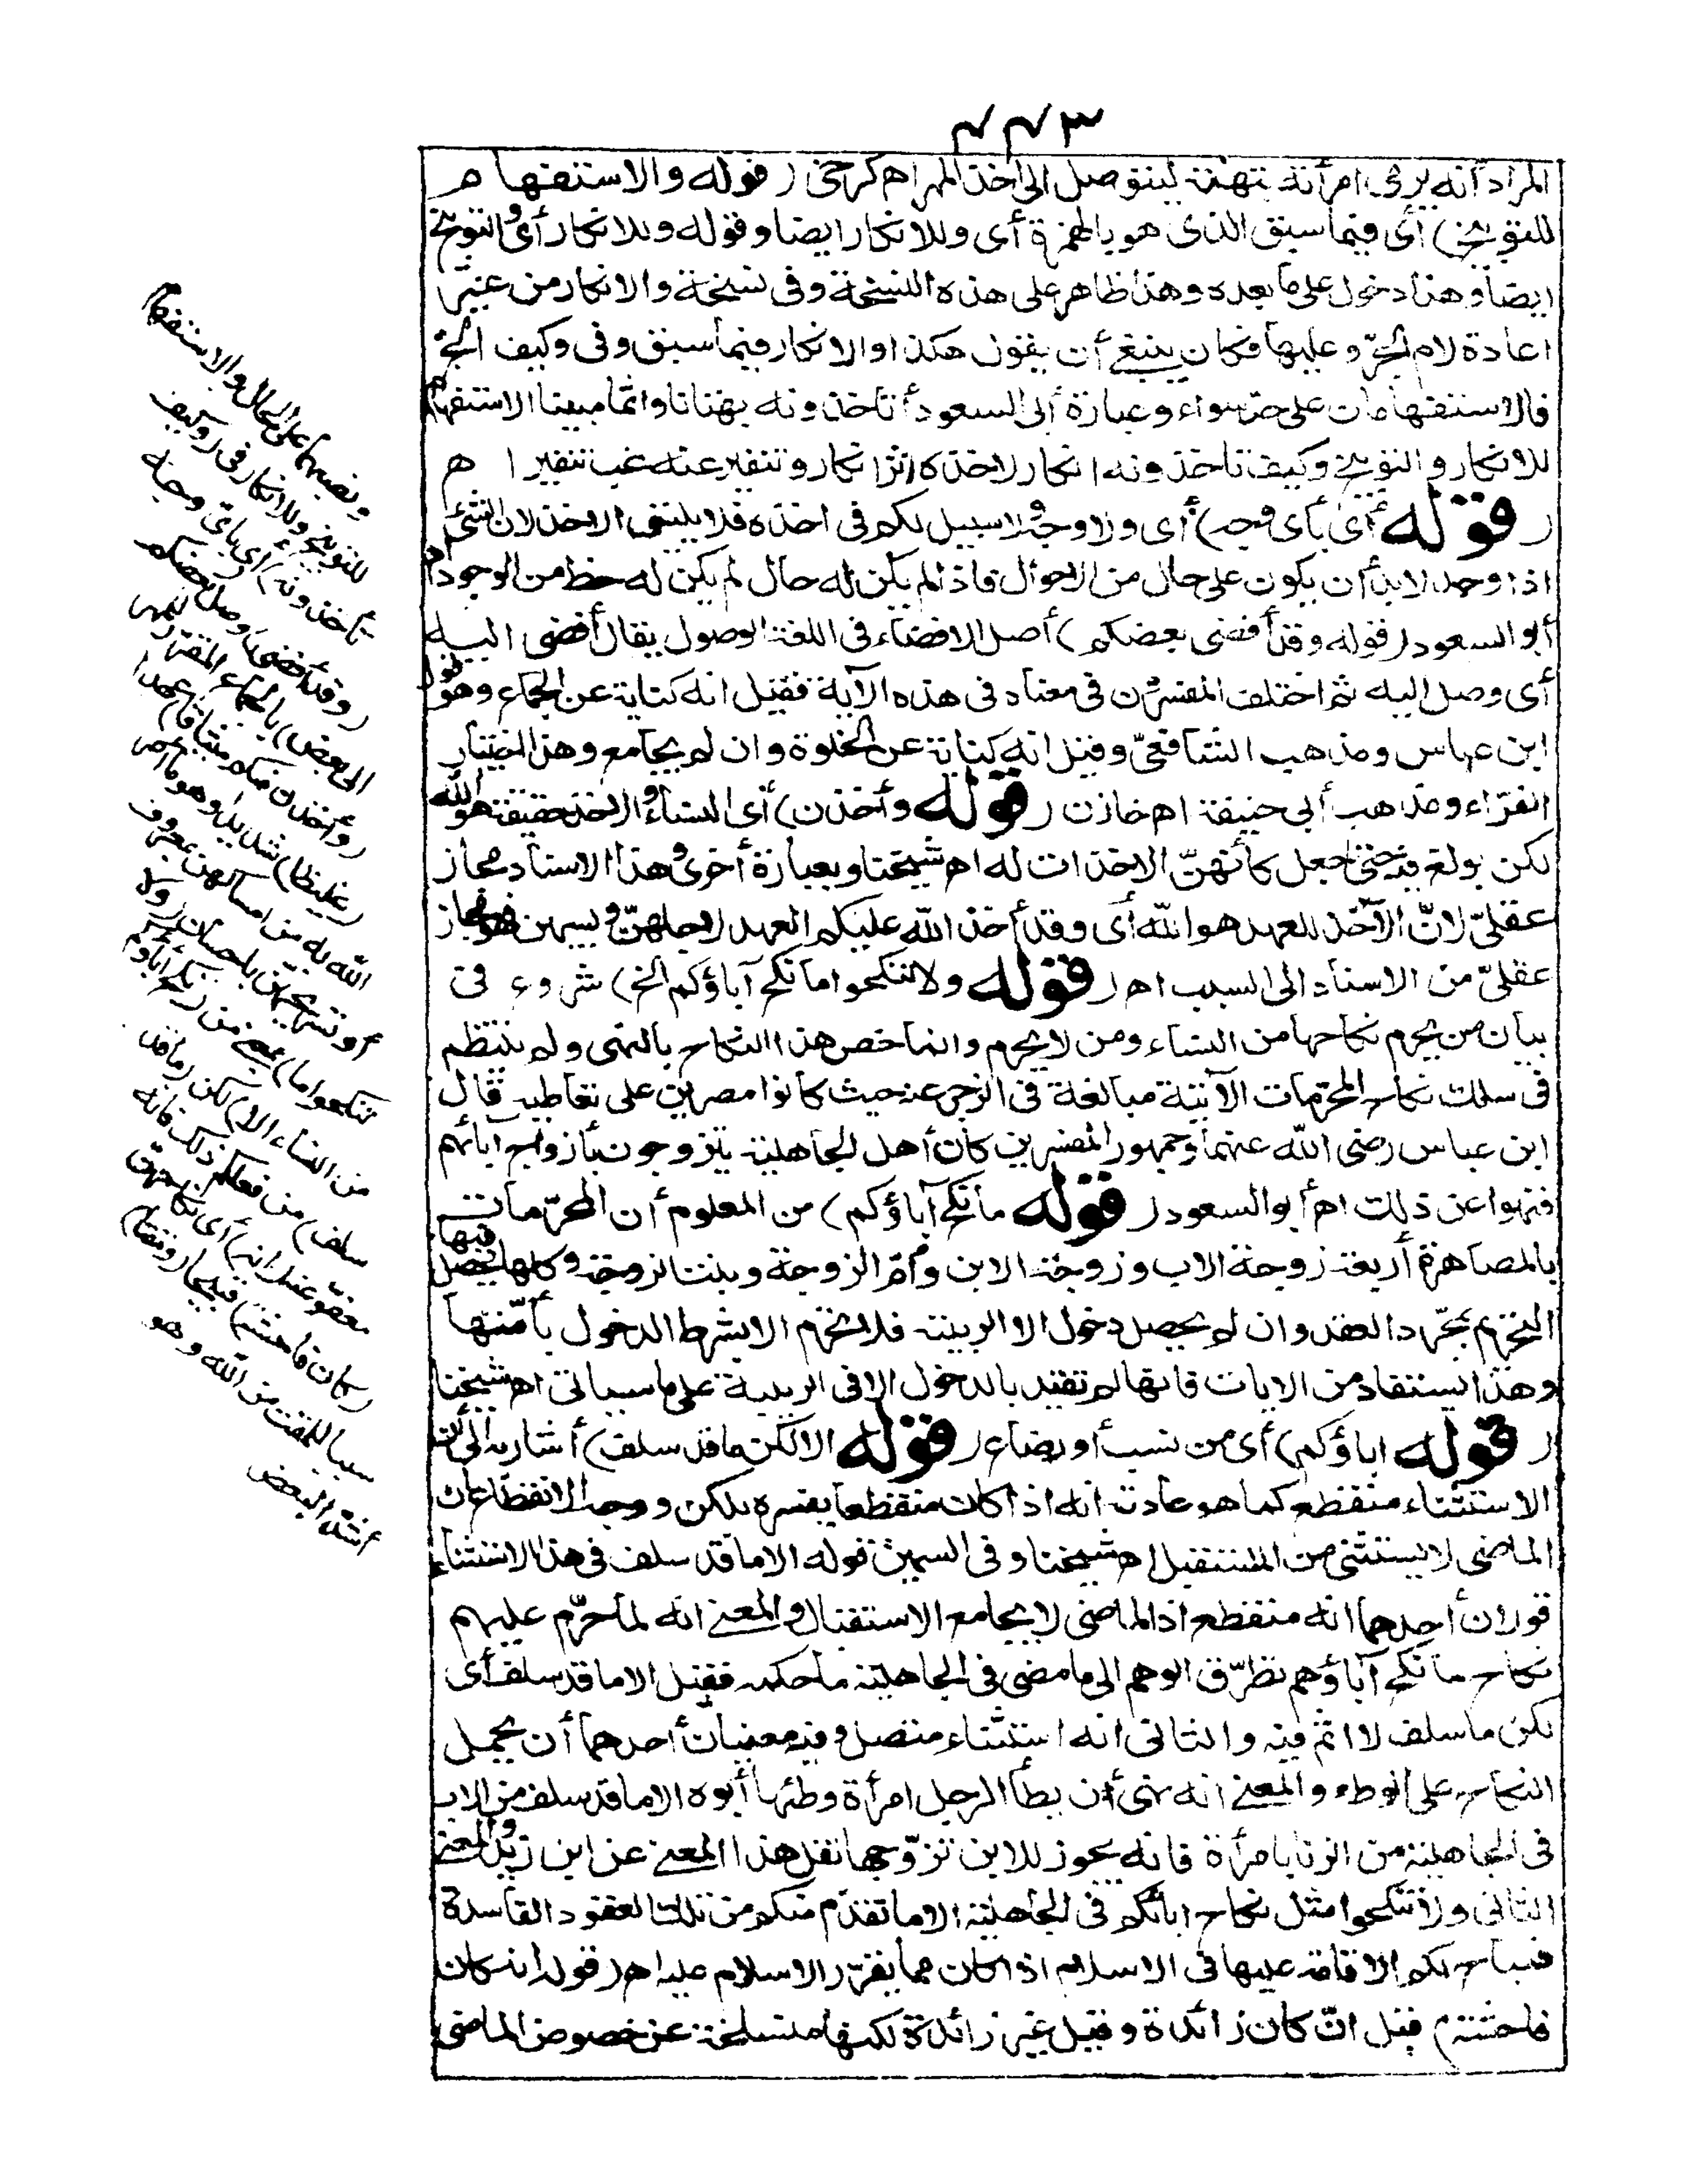 ٣٧٧
المراد أنه يرمى امرأته بتهمة ليتوصل الى أخذ المهر اه كرخى (قوله والاستفهام
للتوبيخ) أى فيما سبق الذى هو بالهمزة أى وللانكار ايضا وقوله وللانكار أى والتوبيخ
ايضا وهذا دخول على ما بعده وهذا ظاهر على هذه النسخة وفى نسخة والانكار من غير
اعادة لام الجرّ وعليها فكان ينبغى أن يقول هكذا والانكار فيما سبق وفى وكيف الخ
فالاستفهامان على حدّ سواء وعبارة أبى السعود أتأخذونه بهتانا واثما مبينا الاستفهام
للانكار والتوبيخ وكيف تاخذونه انكار لاخذه اثر انكار وتنفير عنه غب تنفير اه
(قوله أى بأى وجه) أى ولا وجه ولا سبيل لكم فى اخذه فلا يليق الاخذ لان الشئ
اذا وجد لابد أن يكون على حال من الاحوال فاذا لم يكن له حال لم يكن له حظ من الوجود اه
أبو السعود (قوله وقد أفضى بعضكم) أصل الافضاء فى اللغة الوصول يقال أفضى اليه
أى وصل اليه ثم اختلف المفسرون فى معناه فى هذه الآية فقيل انه كناية عن الجماع وهو قول
ابن عباس ومذهب الشافعىّ وقيل انه كناية عن الخلوة وان لم يجامع وهذا اختيار
الفرّاء ومذهب أبى حنيفة اه خازن (قوله وأخذن) أى النساء والاخذ حقيقة هو الله
لكن بولغ فيه حتى جعل كأنهنّ الاخذات له اه شيخنا وبعبارة أخرى وهذا الاسناد مجاز
عقلىّ لانّ الآخذ للعهد هو الله أى وقد أخذ الله عليكم العهد لاجلهنّ وبسببهن فهو مجاز
عقلىّ من الاسناد الى السبب اه (قوله ولا تنكحوا ما نكح آباؤكم الخ) شروع فى
بيان من يحرم نكاحها من النساء ومن لا يحرم وانما خص هذا النكاح بالنهى ولم ينتظم
فى سلك نكاح المحرّمات الآتية مبالغة فى الزجر عنه حيث كانوا مصرين على تعاطيه قال
ابن عباس رضى الله عنهما وجمهور المفسرين كان أهل الجاهلية يتزوجون بأزواج آبائهم
فنهوا عن ذلك اه أبو السعود (قوله ما نكح آباؤكم) من المعلوم أن المحرّمات
بالمصاهرة أربعة زوجة الاب وزوجة الابن وأمّ الزوجة وبنت الزوجة وكلها يحصل فيها
التحريم بمجرّد العقد وان لم يحصل دخول الا الربيبة فلا تحرم الا بشرط الدخول بأمّها
وهذا يستفاد من الايات فانها لم تقيد بالدخول الا فى الربيبة على ما سياتى اه شيخنا
(قوله اباؤكم) أى من نسب أو رضاع (قوله الا لكن ما قد سلف) أشار به الى أن
الاستثناء منقطع كما هو عادته انه اذا كان منقطعا يفسره بلكن ووجه الانقطاع ان
الماضى لا يستثنى من المستقبل اه شيخنا وفى السمين قوله الا ما قد سلف فى هذا الاستثناء
قولان أحدهما انه منقطع اذ الماضى لا يجامع الاستقبال والمعنى انه لما حرّم عليهم
نكاح ما نكح آباؤهم تطرّق الوهم الى ما مضى فى الجاهلية ما حكمه فقيل الا ما قد سلف أى
لكن ما سلف لا اثم فيه والثانى انه استثناء متصل وفيه معنيان أحدهما أن يحمل
النكاح على الوطء والمعنى انه نهى أن يطأ الرجل امرأة وطئها أبوه الا ما قد سلف من الاب
فى الجاهلية من الزنا بامرأة فانه يجوز للابن تزوّجها نقل هذا المعنى عن ابن زيد والمعنى
الثانى ولا تنكحوا مثل نكاح ابائكم فى الجاهلية الا ما تقدّم منكم من تلك العقود الفاسدة
فمباح لكم الاقامة عليها فى الاسلام اذا كان مما يقرّر الاسلام عليه اه (قوله انه كان
فاحشة) قيل انّ كان زائدة وقيل غير زائدة لكنها منسلخة عن خصوص الماضى
ونصبهما على الحال والاستفهام
للتوبيخ وللانكار فى (وكيف
تأخذونه) أى بأى وجه
(وقد أفضى) وصل (بعضكم
الى بعض) بالجماع المقرّر للمهر
(وأخذن منكم ميثاقا) عهدا
(غليظا) شديدا وهو ما أمر
الله به من امساكهن بمعروف
أو تسريحهنّ باحسان (ولا
تنكحوا ما) بمعنى من (نكح آباؤكم
من النساء الا) لكن (ما قد
سلف) من فعلكم ذلك فانه
معفوّ عنه (انه) أى نكاحهنّ
(كان فاحشة) قبيحا (ومقتا)
سببا للمقت من الله وهو
أشدّ البغض